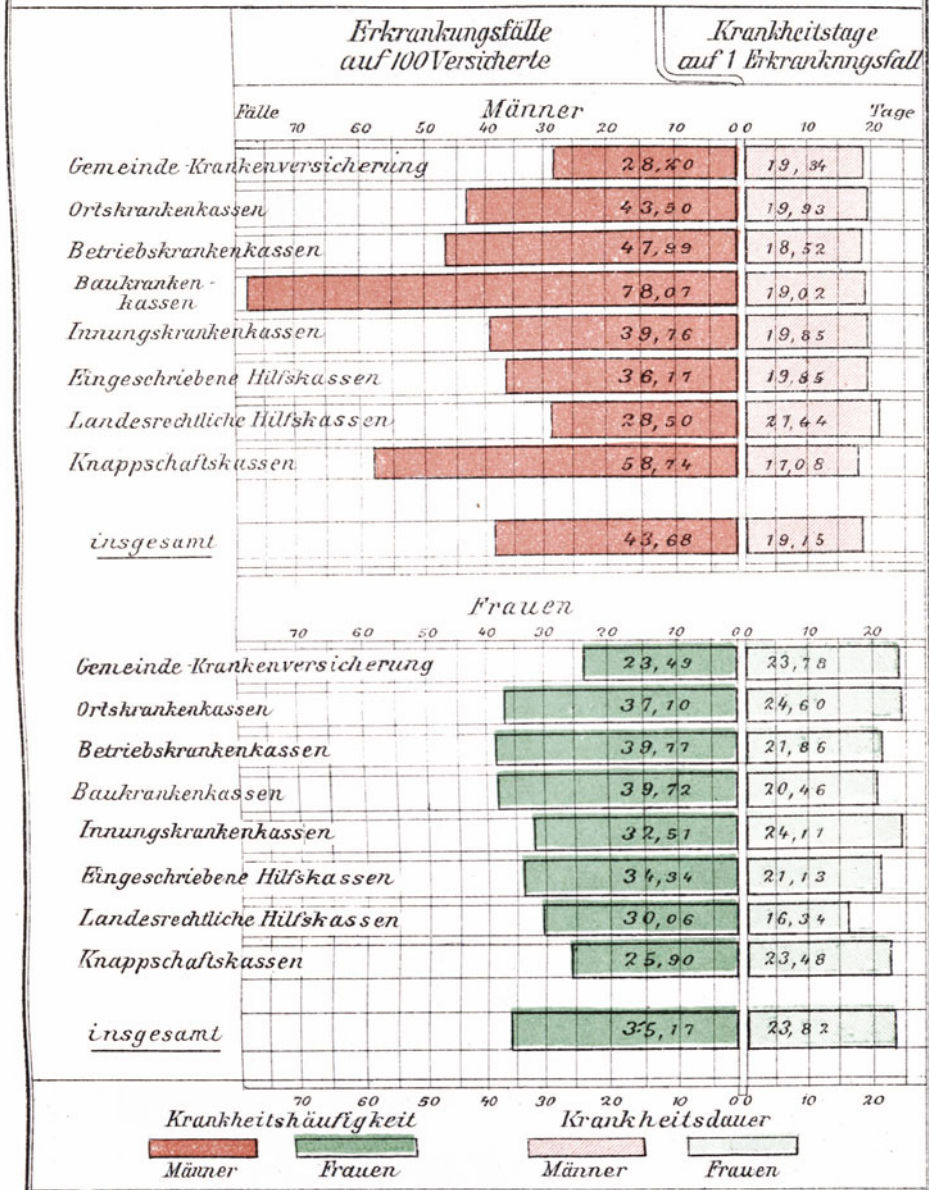 Erkrankungsfälle
auf 100 Versicherte
Krankheitstage
auf 1 Erkranknngsfall
Männer
Fälle 70 60 50 40 30 20 10 0 0 10 20 Tage
Gemeinde-Krankenversicherung 19,34
Ortskrankenkassen 43,50 19,93
Betriebskrankenkassen 47,99 18,52
Baukranken-
kassen 78,07 19,02
Innungskrankenkassen 39,76 19,85
Eingeschriebene Hilfskassen 36,17 19,85
Landesrechtliche Hilfskassen 28,50 21,44
Knappschaftskassen 58,74 17,08
insgesamt 43,68 19,15
Frauen
70 60 50 40 30 20 10 0 0 10 20
Gemeinde-Krankenversicherung 23,49 23,78
Ortskrankenkassen 37,10 24,60
Betriebskrankenkassen 39,77 21,86
Baukrankenkassen 39,72 20,46
Innungskrankenkassen 32,51 24,11
Eingeschriebene Hilfskassen 34,34 21,13
Landesrechtliche Hilfskassen 30,06 16,34
Knappschaftskassen 25,90 23,48
insgesamt 35,17 23,82
70 60 50 40 30 20 10 0 0 10 20
Krankheitshäufigkeit
Männer Frauen
Krankheitsdauer
Männer Frauen